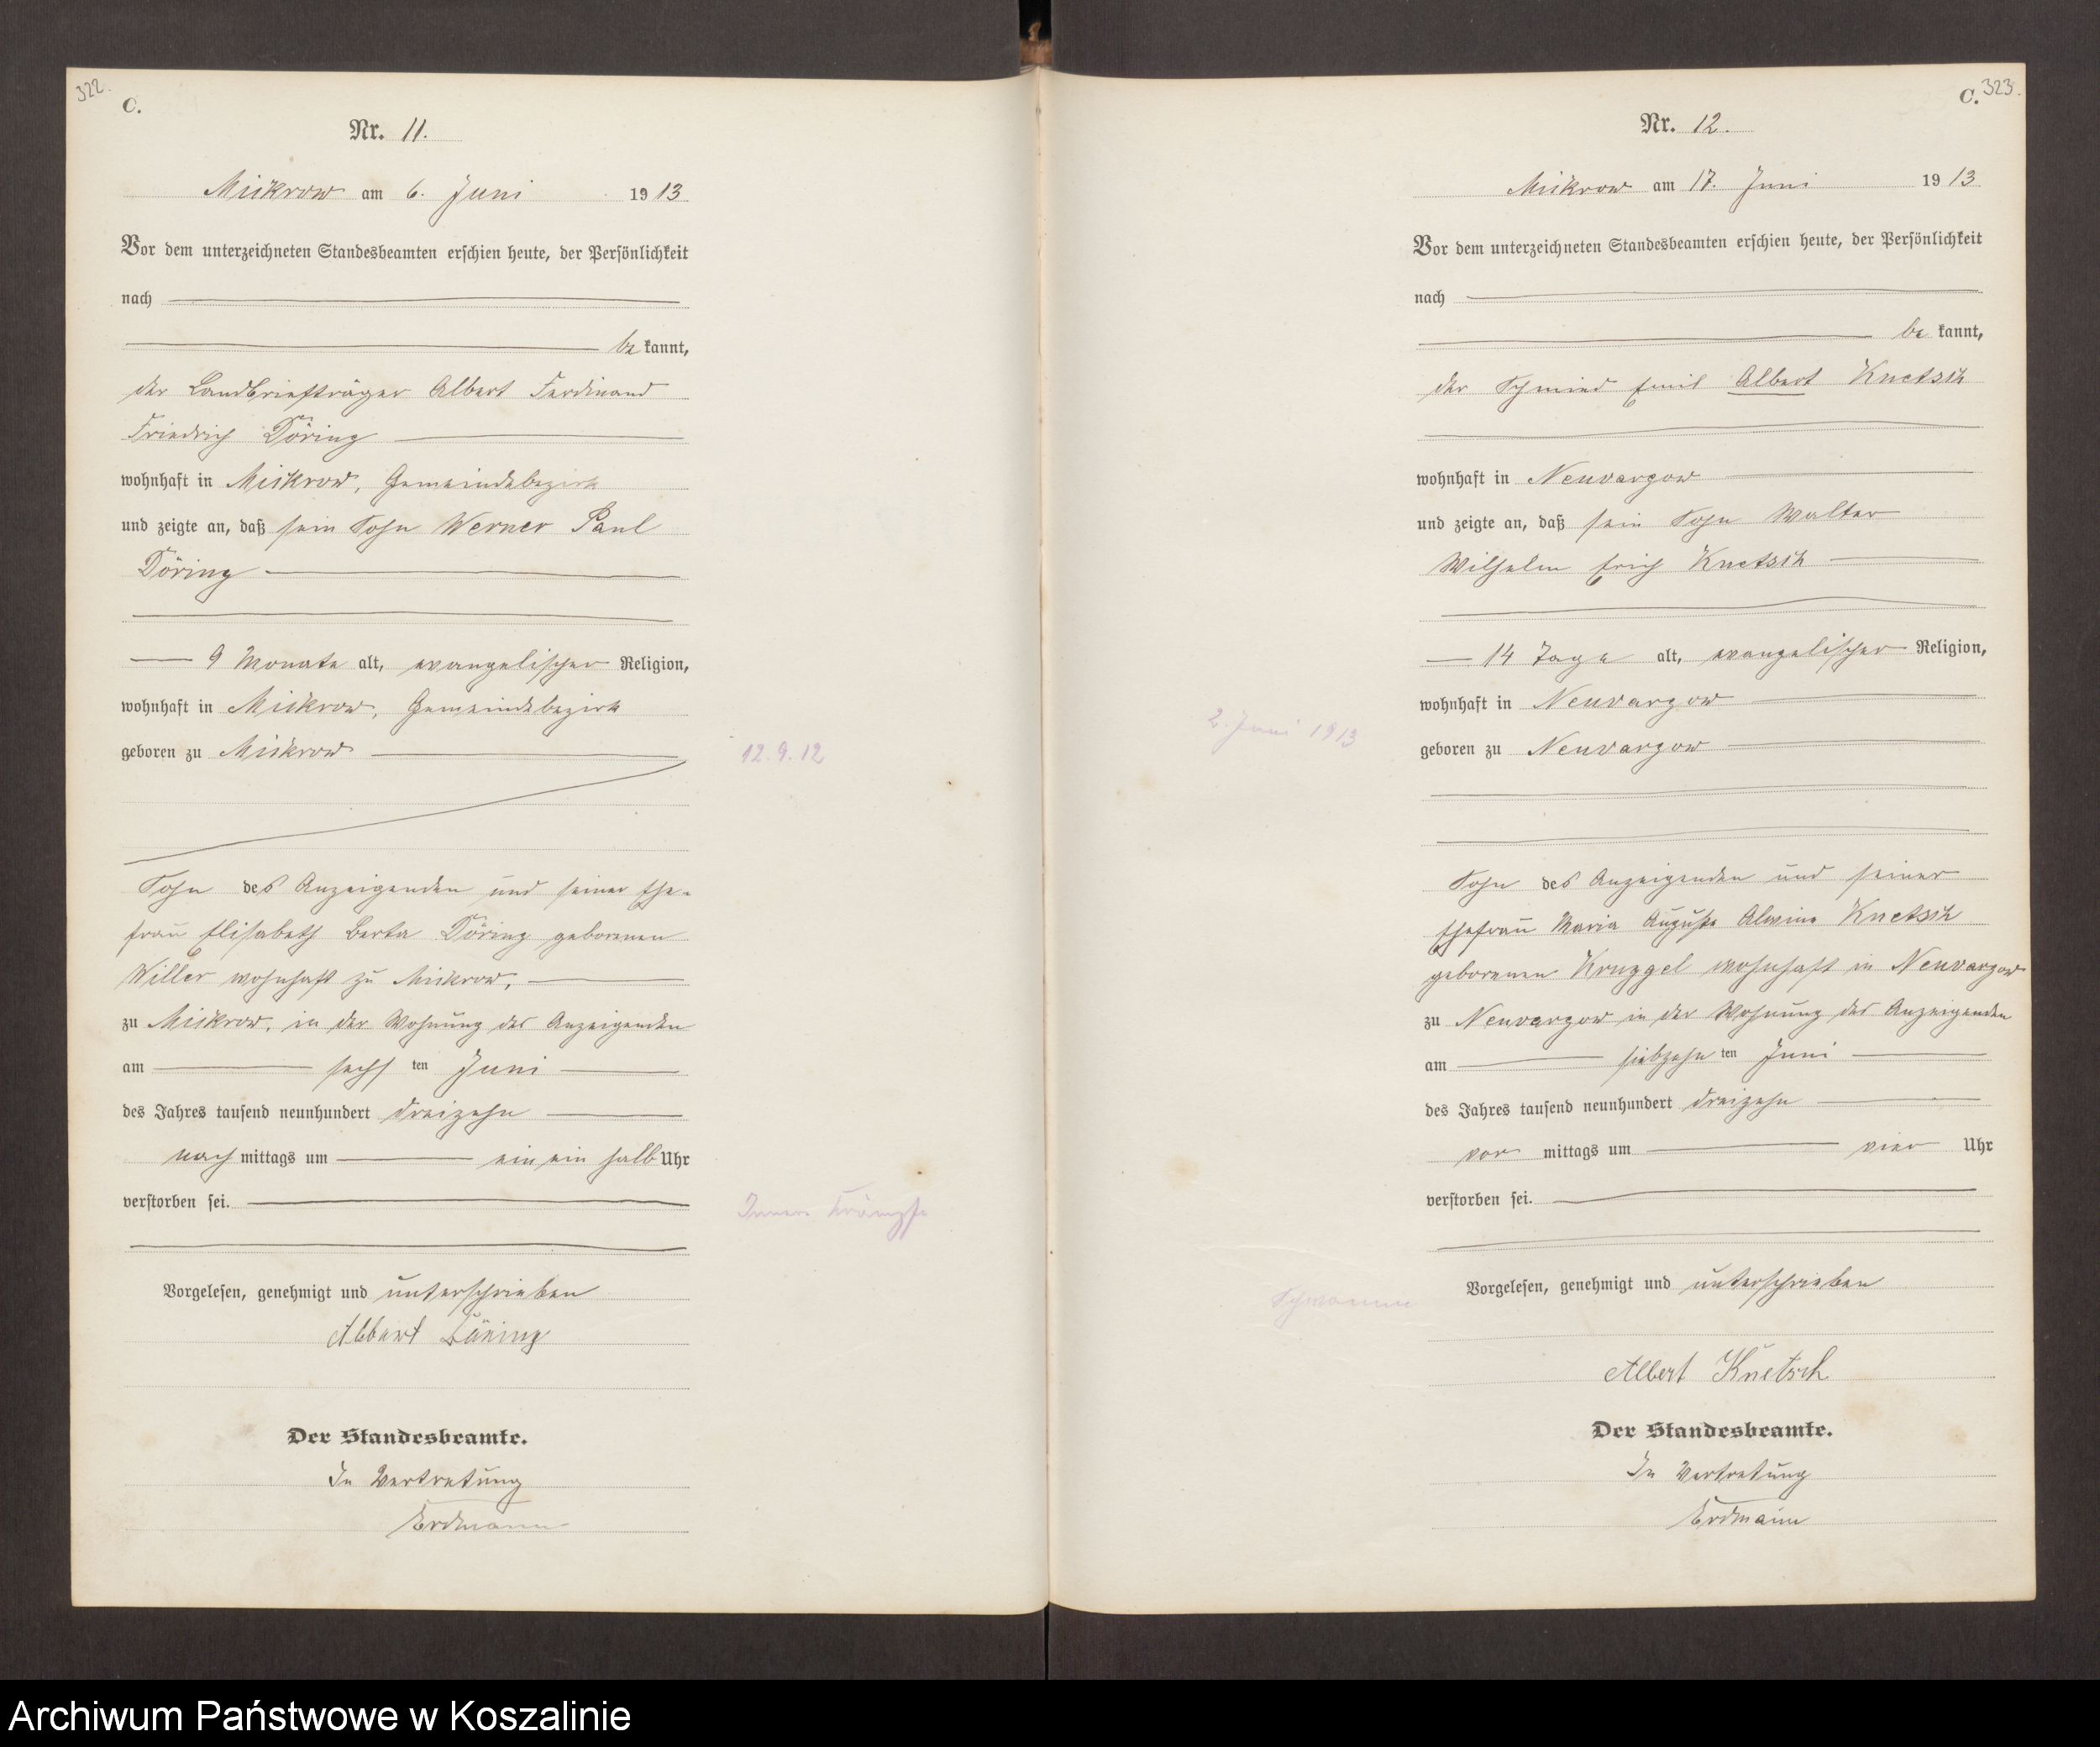 322.
C.
Nr. 11.
Mickrow am 6. Juni 1913
Vor dem unterzeichneten Standesbeamten erschien heute, der Persönlichkeit
nach
be kannt,
der Landbriefträger Albert Ferdinand
Friedrich Döring
wohnhaft in Mickrow, Gemeindebezirk
und zeigte an, daß sein Sohn Werner Paul
Döring
9 Monate alt, evangelischer Religion,
wohnhaft in Mickrow, Gemeindebezirk
geboren zu Mickrow
12.9.12
Sohn des Anzeigenden und seiner Ehe-
frau Elisabeth Berta Döring geborenen
Willer wohnhaft zu Mickrow,
zu Mickrow, in der Wohnung des Anzeigenden
am sechs ten Juni
des Jahres tausend neunhundert dreizehn
nach mittags um ein ein halb Uhr
verstorben sei.
Innere Krämpfe
Vorgelesen, genehmigt und unterschrieben
Albert Döring
Der Standesbeamte.
In Vertretung
Erdmann
C. 323.
Nr. 12.
Mickrow am 17. Juni 1913
Vor dem unterzeichneten Standesbeamten erschien heute, der Persönlichkeit
nach
be kannt,
der Schmied Emil Albert Knetsch
wohnhaft in Neuvargow
und zeigte an, daß sein Sohn Walter
Wilhelm Erich Knetsch
14 Tage alt, evangelischer Religion,
wohnhaft in Neuvargow
2. Juni 1913
geboren zu Neuvargow
Sohn des Anzeigenden und seiner
Ehefrau Maria Auguste Alwine Knetsch
geborenen Kruggel wohnhaft in Neuvargow
zu Neuvargow in der Wohnung des Anzeigenden
am siebzehn ten Juni
des Jahres tausend neunhundert dreizehn
vor mittags um vier Uhr
verstorben sei.
Vorgelesen, genehmigt und unterschrieben
Albert Knetsch
Der Standesbeamte.
In Vertretung
Erdmann
Archiwum Państwowe w Koszalinie